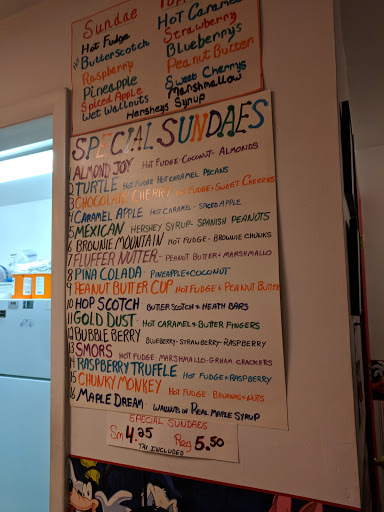 Sundae
Hot Fudge
Butterscotch
Raspberry
Pineapple
Spiced Apple
Wet Wallnuts
Hot Caramel
Strawberry
Blueberrys
Peanut Butter
Sweet Cherrys
Marshmallow
Hersheys Syrup
SPECIAL SUNDAES
1 ALMOND JOY HOT FUDGE-COCONUT-ALMONDS
2 TURTLE HOT FUDGE HOT CARAMEL PECANS
3 CHOCOLATE CHERRY HOT FUDGE & SWEET CHERRIES
4 CARAMEL APPLE HOT CARAMEL - SPICED APPLE
5 MEXICAN HERSHEY SYRUP- SPANISH PEANUTS
6 BROWNIE MOUNTAIN HOT FUDGE- BROWNIE CHUNKS
7 FLUFFER NUTTER- PEANUT BUTTER & MARSHMALLO
8 PINA COLADA- PINEAPPLE & COCONUT
9 PEANUT BUTTER CUP HOT FUDGE & PEANUT BUTTER
10 HOP SCOTCH BUTTER SCOTCH & HEATH BARS
11 GOLD DUST- HOT CARAMEL & BUTTER FINGERS
12 BUBBLE BERRY BLUEBERRY-STRAWBERRY-RASPBERRY
13 SMORS HOT FUDGE-MARSHMALLO-GRHAM CRACKERS
14 RASPBERRY TRUFFLE HOT FUDGE & RASPBERRY
15 CHUNKY MONKEY HOT FUDGE- BANANAS & NUTS
16 MAPLE DREAM WALLNUTS IN REAL MAPLE SYRUP
SPECIAL SUNDAES
Sm 4.25 Reg 5.50
TAX INCLUDED